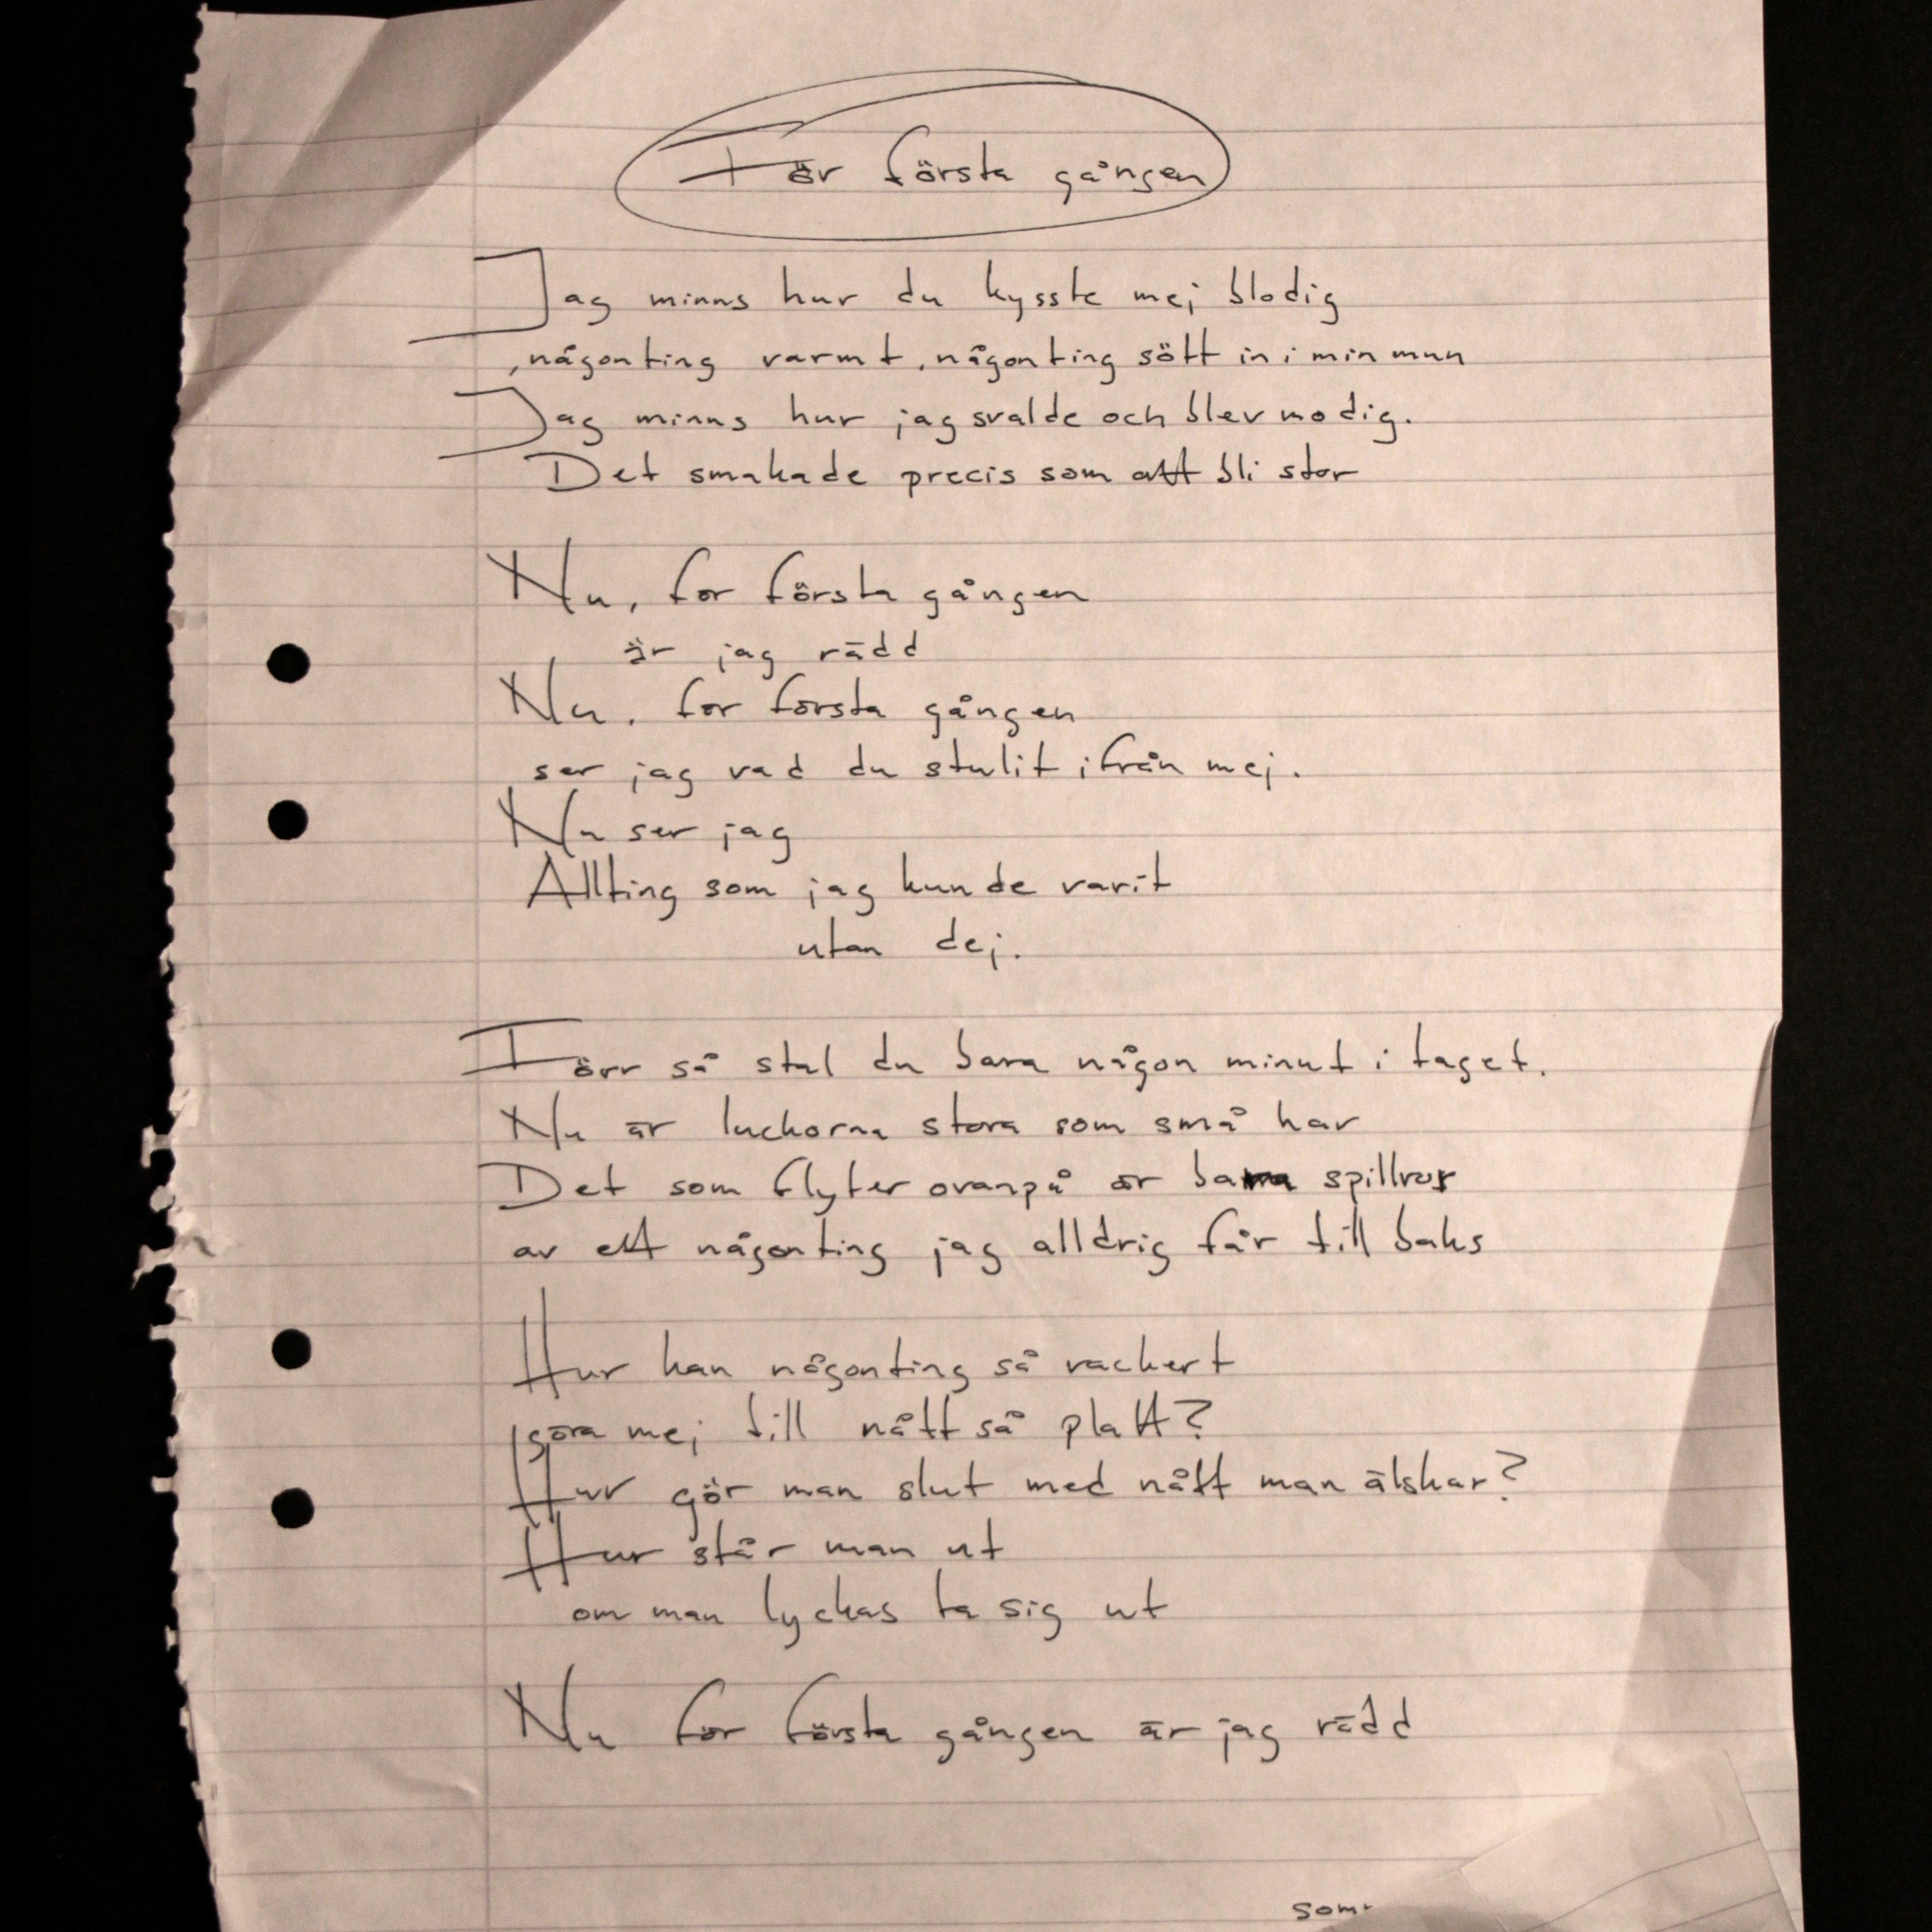 För första gången
Jag minns hur du kysste mej blodig
, någonting varmt, någonting sött in i min mun
Jag minns hur jag svalde och blev modig.
Det smakade precis som att bli stor
Nu, för första gången
är jag rädd
Nu, för första gången
ser jag vad du stulit ifrån mej.
Nu ser jag
Allting som jag kunde varit
utan dej.
Förr så stal du bara någon minut i taget.
Nu är luckorna stora som små hav
Det som flyter ovanpå är bara spillror
av ett någonting jag alldrig får till baks
Hur kan någonting så vackert
göra mej till nått så platt?
Hur gör man slut med nått man älskar?
Hur står man ut
om man lyckas ta sig ut
Nu för första gången är jag rädd